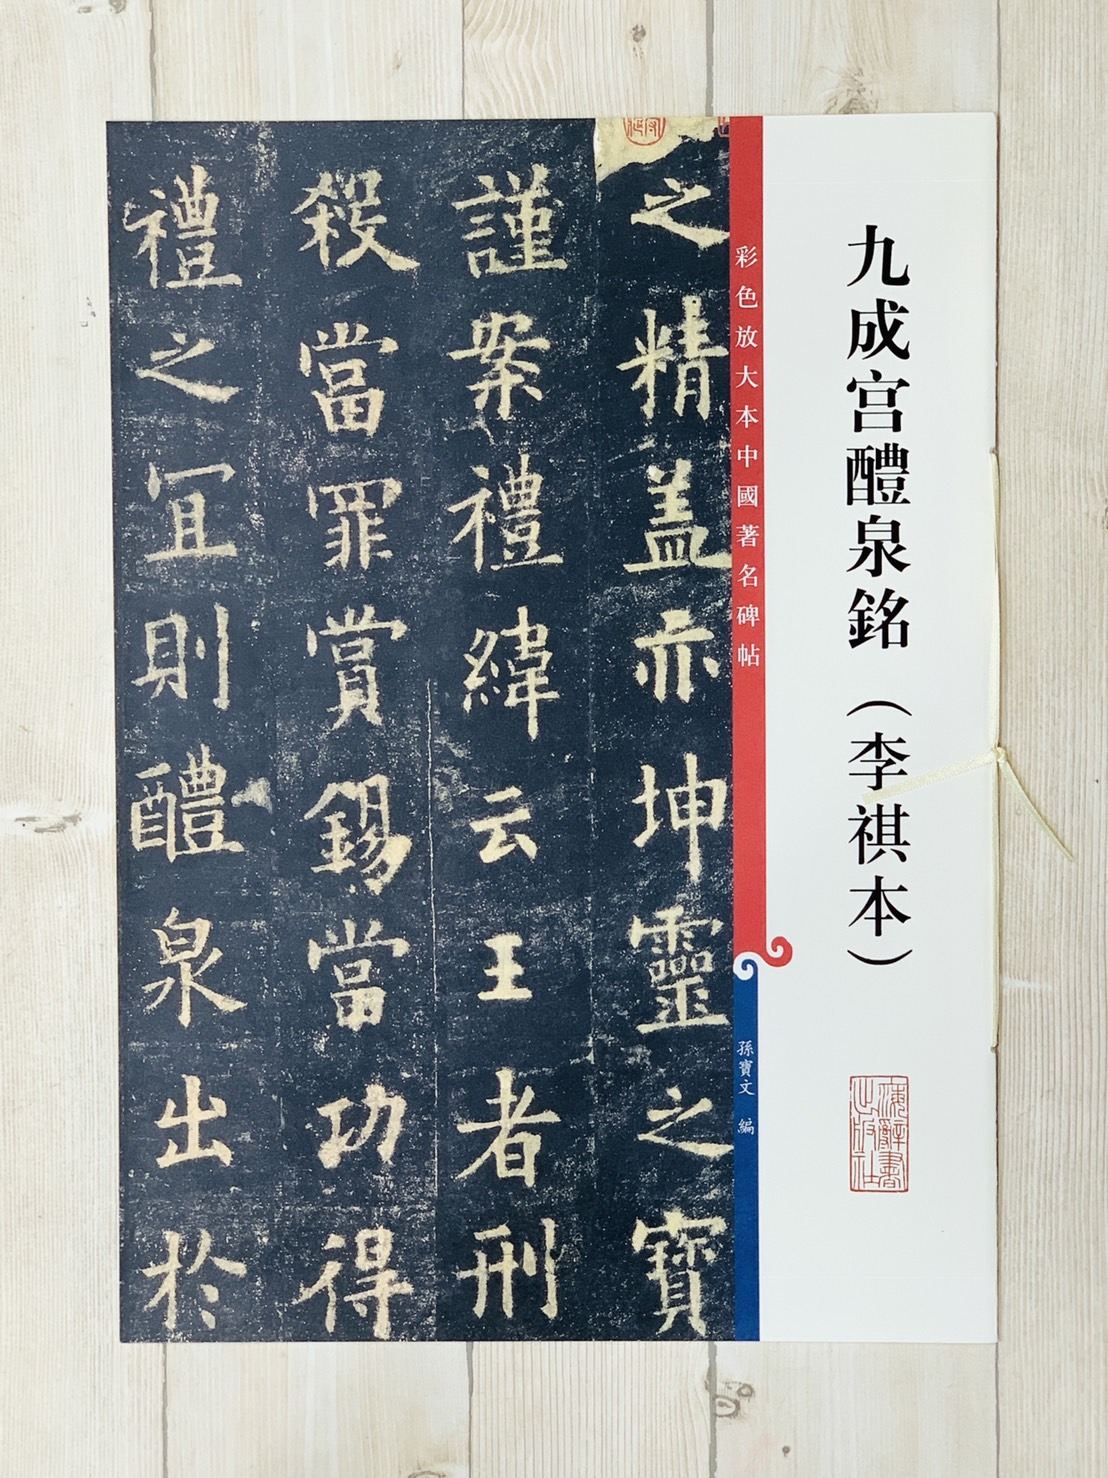 九成宫醴泉銘（李祺本）
彩色放大本中國著名碑帖
孫寶文 編
之精盖亦坤靈之寶
謹案禮緯云王者刑
殺當罪賞錫當功得
禮之冝則醴泉出於